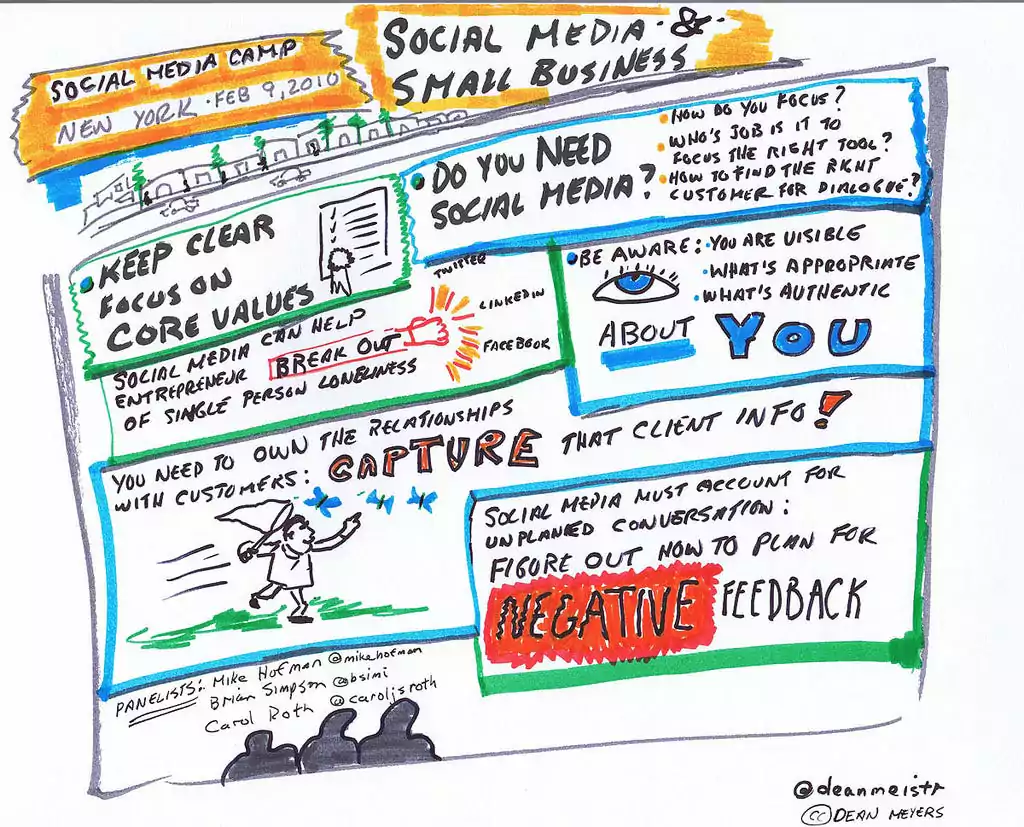 SOCIAL MEDIA CAMP
NEW YORK · FEB 9, 2010
SOCIAL MEDIA · & ·
SMALL BUSINESS
• DO YOU NEED
SOCIAL MEDIA?
• HOW DO YOU FOCUS?
• WHO'S JOB IS IT TO
FOCUS THE RIGHT TOOL?
• HOW TO FIND THE RIGHT
CUSTOMER FOR DIALOGUE?
• KEEP CLEAR
FOCUS ON
CORE VALUES
SOCIAL MEDIA CAN HELP
ENTREPRENEUR BREAK OUT
OF SINGLE PERSON LONELINESS
TWITTER
LINKEDIN
FACEBOOK
• BE AWARE: • YOU ARE VISIBLE
• WHAT'S APPROPRIATE
• WHAT'S AUTHENTIC
ABOUT YOU
YOU NEED TO OWN THE RELATIONSHIPS
WITH CUSTOMERS: CAPTURE THAT CLIENT INFO!
SOCIAL MEDIA MUST ACCOUNT FOR
UNPLANNED CONVERSATION:
FIGURE OUT HOW TO PLAN FOR
NEGATIVE FEEDBACK
PANELISTS: Mike Hofman @mikehofman
Brian Simpson @bsimi
Carol Roth @caroljsroth
@deanmeistr
(CC) DEAN MEYERS